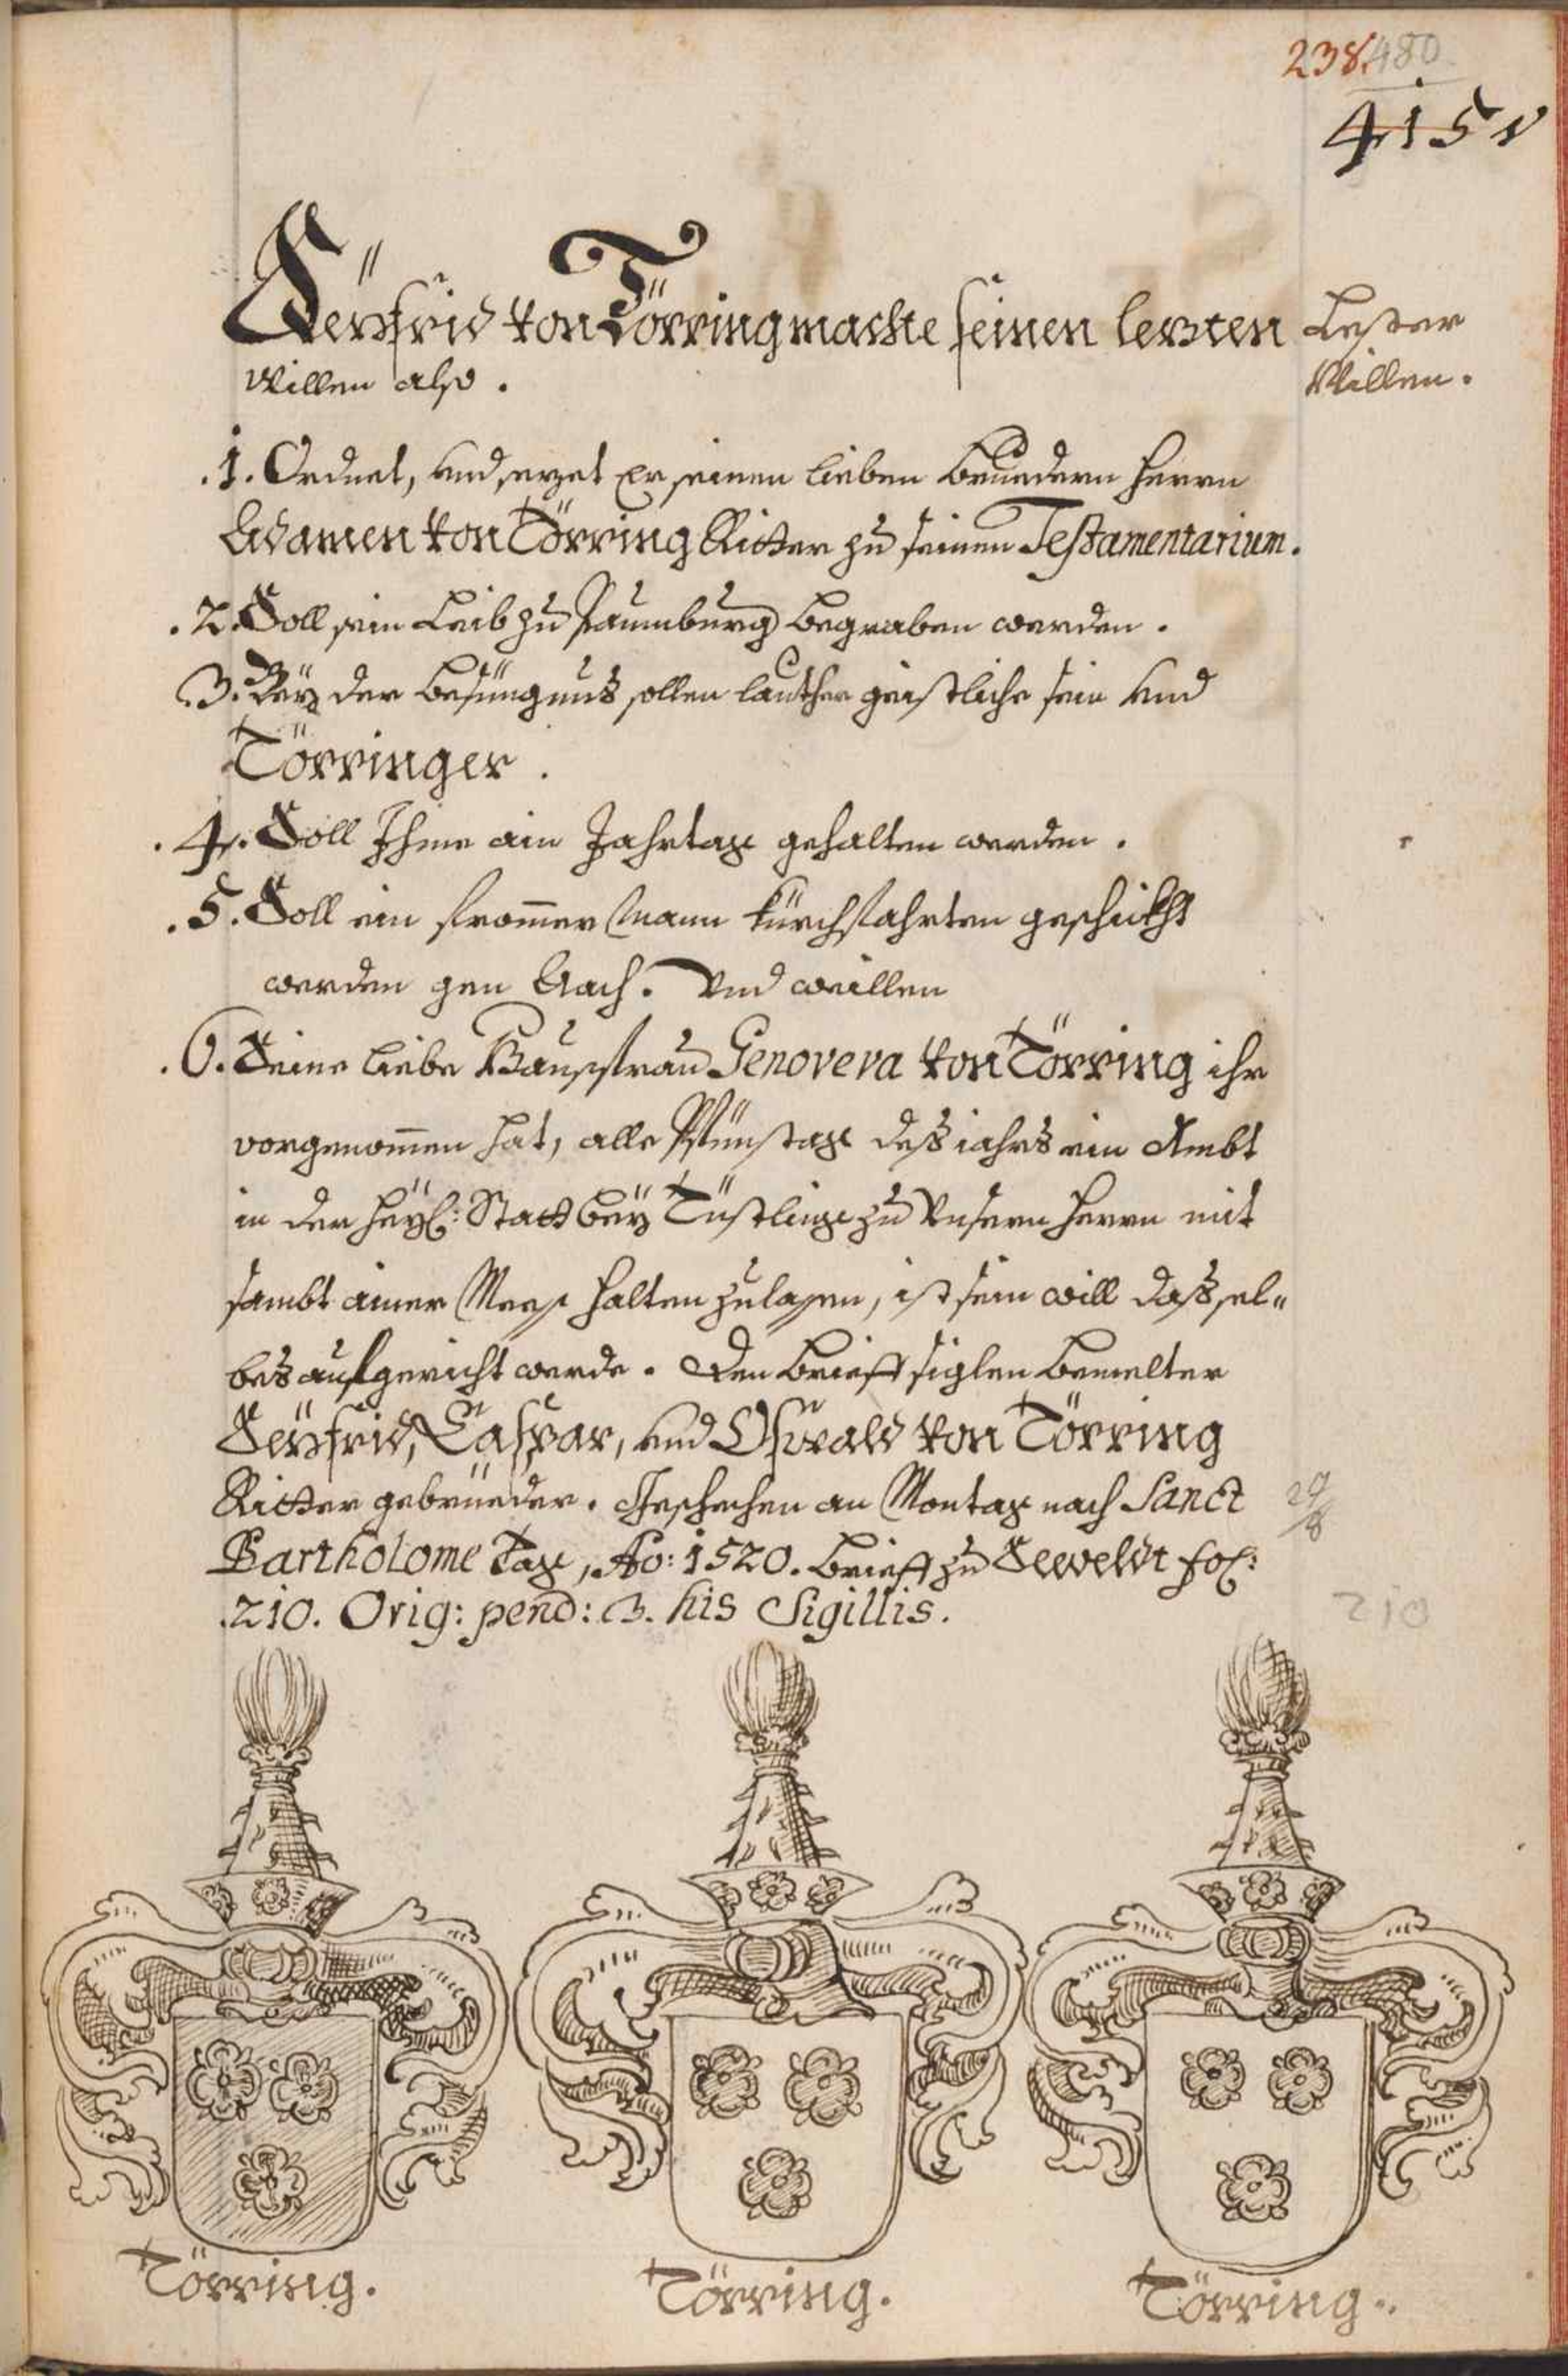 238. 480
415
Seÿfrid von Törring machte seinen lezten
Lezter
Willen also.
Willen.
.1. Ordnet, und sezet Er seinen lieben Bruedern Herrn
Adamen von Törring Ritter zu seinen Testamentarium.
.2. Soll sein Leib zu Paumburg begraben werden.
.3. Beÿ der Besüngnus sollen lauther geistliche sein und
Törringer.
.4. Soll Ihme ain Jahrtag gehalten werden.
.5. Soll ein frommer Mann kürchfahrten geschickht
werden gen Aach. Und weillen
.6. Seine liebe Hausfrau Genoveva von Törring ihr
vorgenommen hat, alle Pfünstag des jahrs ein Ambt
in der Heÿl: Statt beÿ Tüstling zu Unsern Herrn mit
sambt ainer Mess halten zulassen, ist sein will dass sel„
bes aufgericht werde. Den Brieff siglen bemelter
Seÿfrid, Caspar, und Oswald von Törring
Ritter gebrüeder. Geschechen an Montag nach Sanct
29/8
Bartholome Tag, Ao: 1520. Brieff zu Seeveldt fol:
.210. Orig: pend: 3. his Sigillis.
210
Törring.
Törring.
Törring.